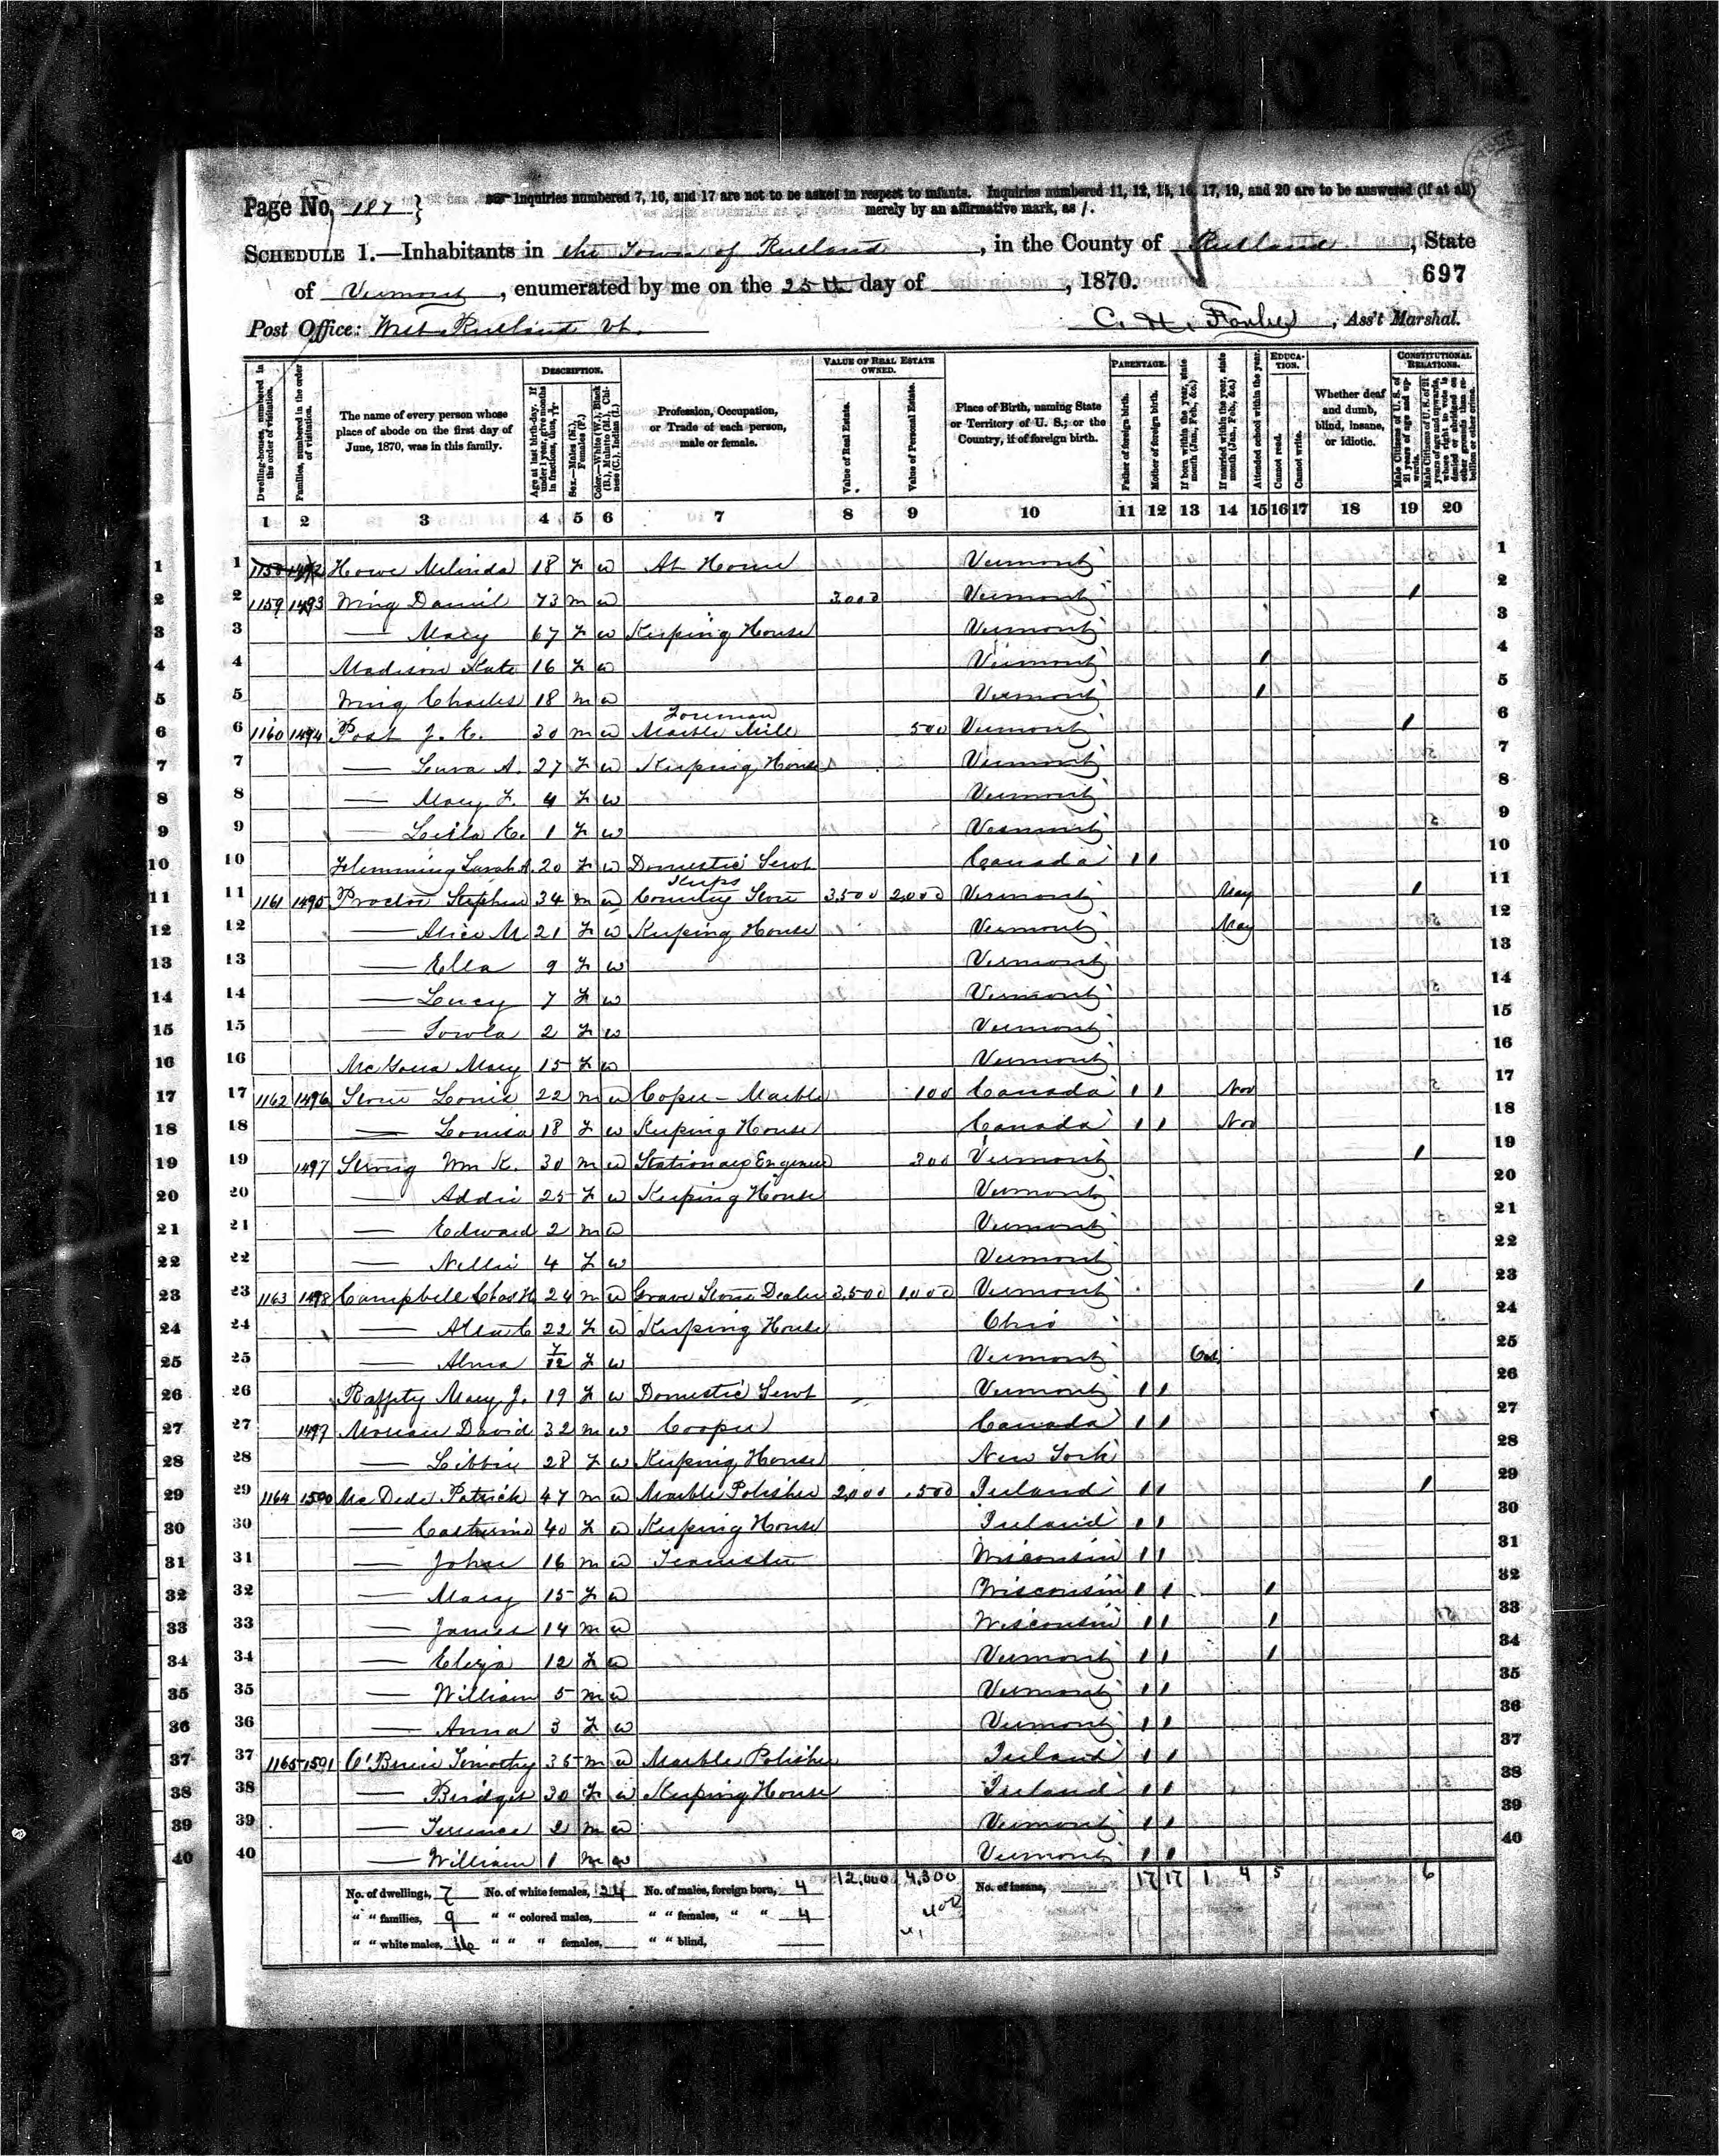 Page No. 187 }
Inquiries numbered 7, 16, and 17 are not to be asked in respect to infants. Inquiries numbered 11, 12, 15, 16, 17, 19, and 20 are to be answered (if at all) merely by an affirmative mark, as /.
SCHEDULE 1.—Inhabitants in the Town of Rutland, in the County of Rutland, State
of Vermont, enumerated by me on the 25th day of , 1870.
697
Post Office: West Rutland Vt.
C. H. , Ass't Marshal.
Dwelling-houses, numbered in the order of visitation.
Families, numbered in the order of visitation.
The name of every person whose place of abode on the first day of June, 1870, was in this family.
DESCRIPTION.
Age at last birth-day. If under 1 year, give months in fractions, thus,
Sex.—Males (M.), Females (F.)
Color.—White (W.), Black (B.), Mulatto (M.), Chinese (C.), Indian (I.)
Profession, Occupation, or Trade of each person, male or female.
VALUE OF REAL ESTATE OWNED.
Value of Real Estate.
Value of Personal Estate.
Place of Birth, naming State or Territory of U. S.; or the Country, if of foreign birth.
PARENTAGE.
Father of foreign birth.
Mother of foreign birth.
If born within the year, state month (Jan., Feb., &c.)
If married within the year, state month (Jan., Feb., &c.)
Attended school within the year.
EDUCATION.
Cannot read.
Cannot write.
Whether deaf and dumb, blind, insane, or idiotic.
CONSTITUTIONAL RELATIONS.
Male Citizens of U. S. of 21 years of age and upwards.
Male Citizens of U. S. of 21 years of age and upwards, whose right to vote is denied or abridged on other grounds than rebellion or other crime.
1 2 3 4 5 6 7 8 9 10 11 12 13 14 15 16 17 18 19 20
1 1158 1492 Howe Melinda 18 F W At Home Vermont 1
2 1159 1493 Wing Daniel 73 M W 3000 Vermont / 2
3 — Mary 67 F W Keeping House Vermont 3
4 Madison Kate 16 F W Vermont / 4
5 Wing Charles 18 M W Vermont / 5
6 1160 1494 Post J. E. 30 M W Foreman Marble Mill 500 Vermont / 6
7 — Laura A. 27 F W Keeping House Vermont 7
8 — Mary F. 4 F W Vermont 8
9 — Leila E. 1 F W Vermont 9
10 Flemming Sarah A. 20 F W Domestic Servt Canada / / 10
11 1161 1495 Proctor Stephen 34 M W Keeps Country Store 3,500 2,000 Vermont May / 11
12 — Alice M 21 F W Keeping House Vermont May 12
13 — Ella 9 F W Vermont 13
14 — Lucy 7 F W Vermont 14
15 — 2 F W Vermont 15
16 Mary 15 F W Vermont 16
17 1162 1496 Louis 22 M W Marble 100 Canada / / Nov 17
18 — Louisa 18 F W Keeping House Canada / / Nov 18
19 1497 Strong Wm K. 30 M W Stationary Engineer 300 Vermont / 19
20 — Addie 25 F W Keeping House Vermont 20
21 — Edward 2 M W Vermont 21
22 — Nellie 4 F W Vermont 22
23 1163 1498 Campbell Chas H 24 M W Grave Stone Dealer 3,500 1,000 Vermont / 23
24 — C 22 F W Keeping House Ohio 24
25 — Alma 7/12 F W Vermont Oct 25
26 Raffety Mary J. 19 F W Domestic Servt Vermont / / 26
27 1497 David 32 M W Cooper Canada / / 27
28 — Libbie 28 F W Keeping House New York 28
29 1164 1500 Mc Dede Patrick 47 M W Marble Polisher 2,000 500 Ireland / / / 29
30 — Catherine 40 F W Keeping House Ireland / / 30
31 — John 16 M W Teamster Wisconsin / / 31
32 — Mary 15 F W Wisconsin / / / 32
33 — James 14 M W Wisconsin / / / 33
34 — Eliza 12 F W Vermont / / / 34
35 — William 5 M W Vermont / / 35
36 — Anna 3 F W Vermont / / 36
37 1165 1501 O'Brien Timothy 35 M W Marble Polisher Ireland / / 37
38 — Bridget 30 F W Keeping House Ireland / / 38
39 — Terrence 2 M W Vermont / / 39
40 — William 1 M W Vermont / / 40
No. of dwellings, 7 No. of white females, 24 No. of males, foreign born, 4 12,000 4,300 No. of insane, 17 17 1 4 5 6
" " families, 9 " " colored males, " " females, " " 4
" " white males, 16 " " " females, " " blind,